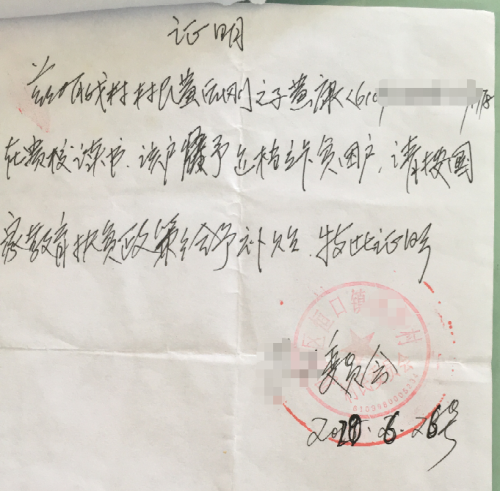 证明
兹有我村村民黄 刚之子黄康(610
在贵校读书.该户属于建档立卡贫困户,请按国
家教育扶贫政策给予补贴.特此证明
区恒口镇 村
委员会
2020.6.26号